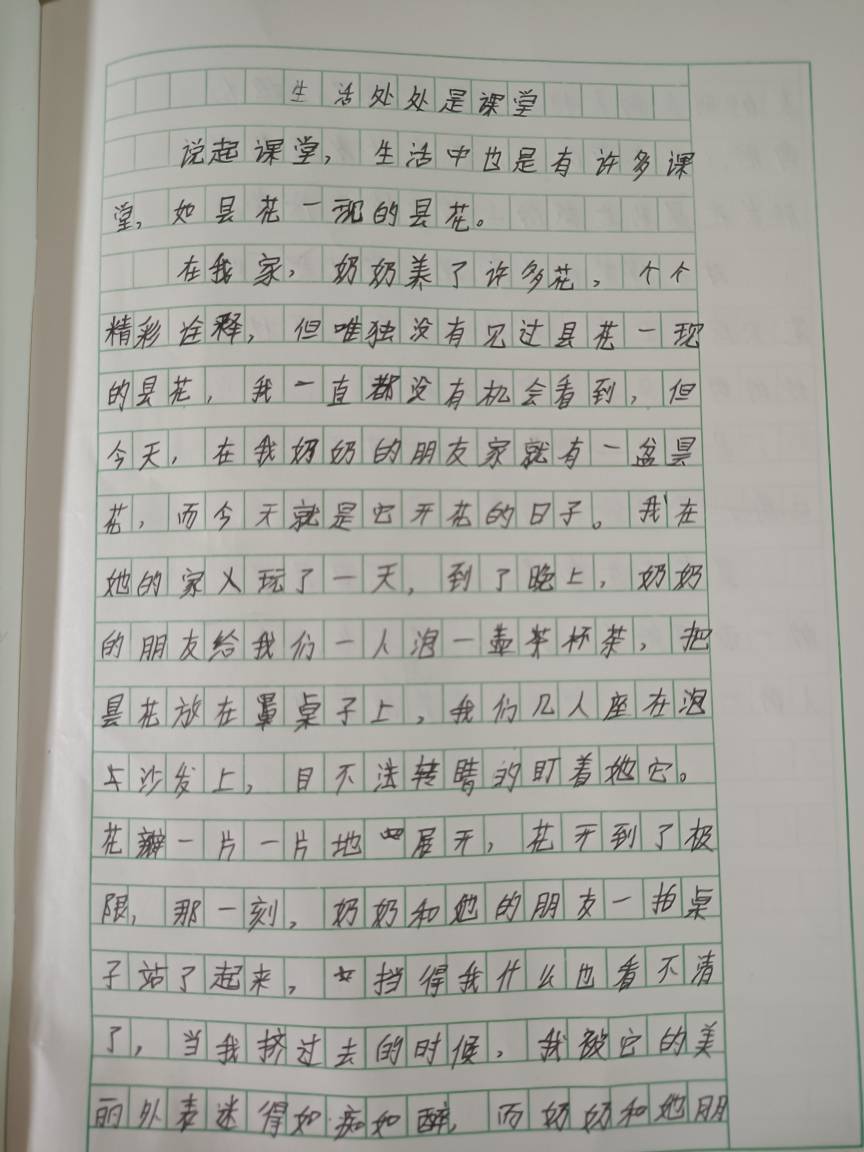 生活处处是课堂
说起课堂，生活中也是有许多课
堂，如昙花一现的昙花。
在我家，奶奶养了许多花，个个
精彩诠释，但唯独没有见过昙花一现
的昙花，我一直都没有机会看到，但
今天，在我奶奶的朋友家就有一盆昙
花，而今天就是它开花的日子。我在
她的家义玩了一天，到了晚上，奶奶
的朋友给我们一人泡一壶茶杯茶，把
昙花放在桌子上，我们几人座在泡
沙发上，目不法转睛的盯着她它。
花瓣一片一片地展开，花开到了极
限，那一刻，奶奶和她的朋友一拍桌
子站了起来，挡得我什么也看不清
了，当我挤过去的时候，我被它的美
丽外表迷得如痴如醉，而奶奶和她朋